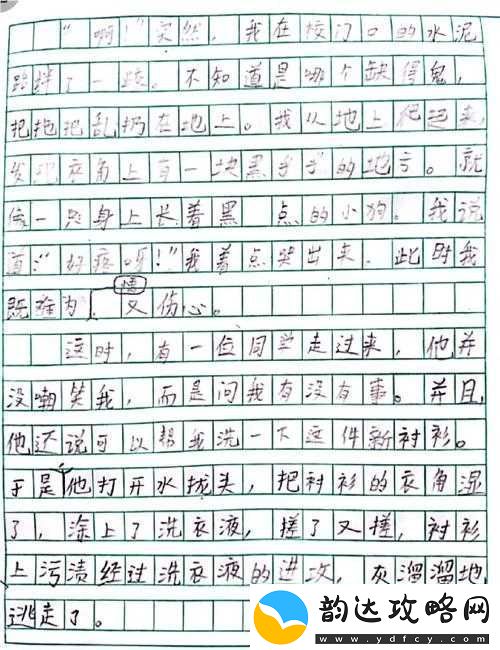 “啊！”突然，我在校门口的水泥
路拌了一跤。不知道是哪个缺得鬼，
把拖把乱扔在地上。我从地上爬起来，
发现衣角上有一块黑乎乎的地方。就
像一只身上长着黑 点的小狗。我说
道：“好疼呀！”我差点哭出来。此时我
情
既难为，又伤心。
这时，有一位同学走过来，他并
没嘲笑我，而是问我有没有事。并且，
他还说可以帮我洗一下这件新衬衫。
于是他打开水拢头，把衬衫的衣角湿
了，涂上了洗衣液，搓了又搓，衬衫
上污渍经过洗衣液的进攻，灰溜溜地
逃走了。
韵达攻略网
www.ydfcy.com